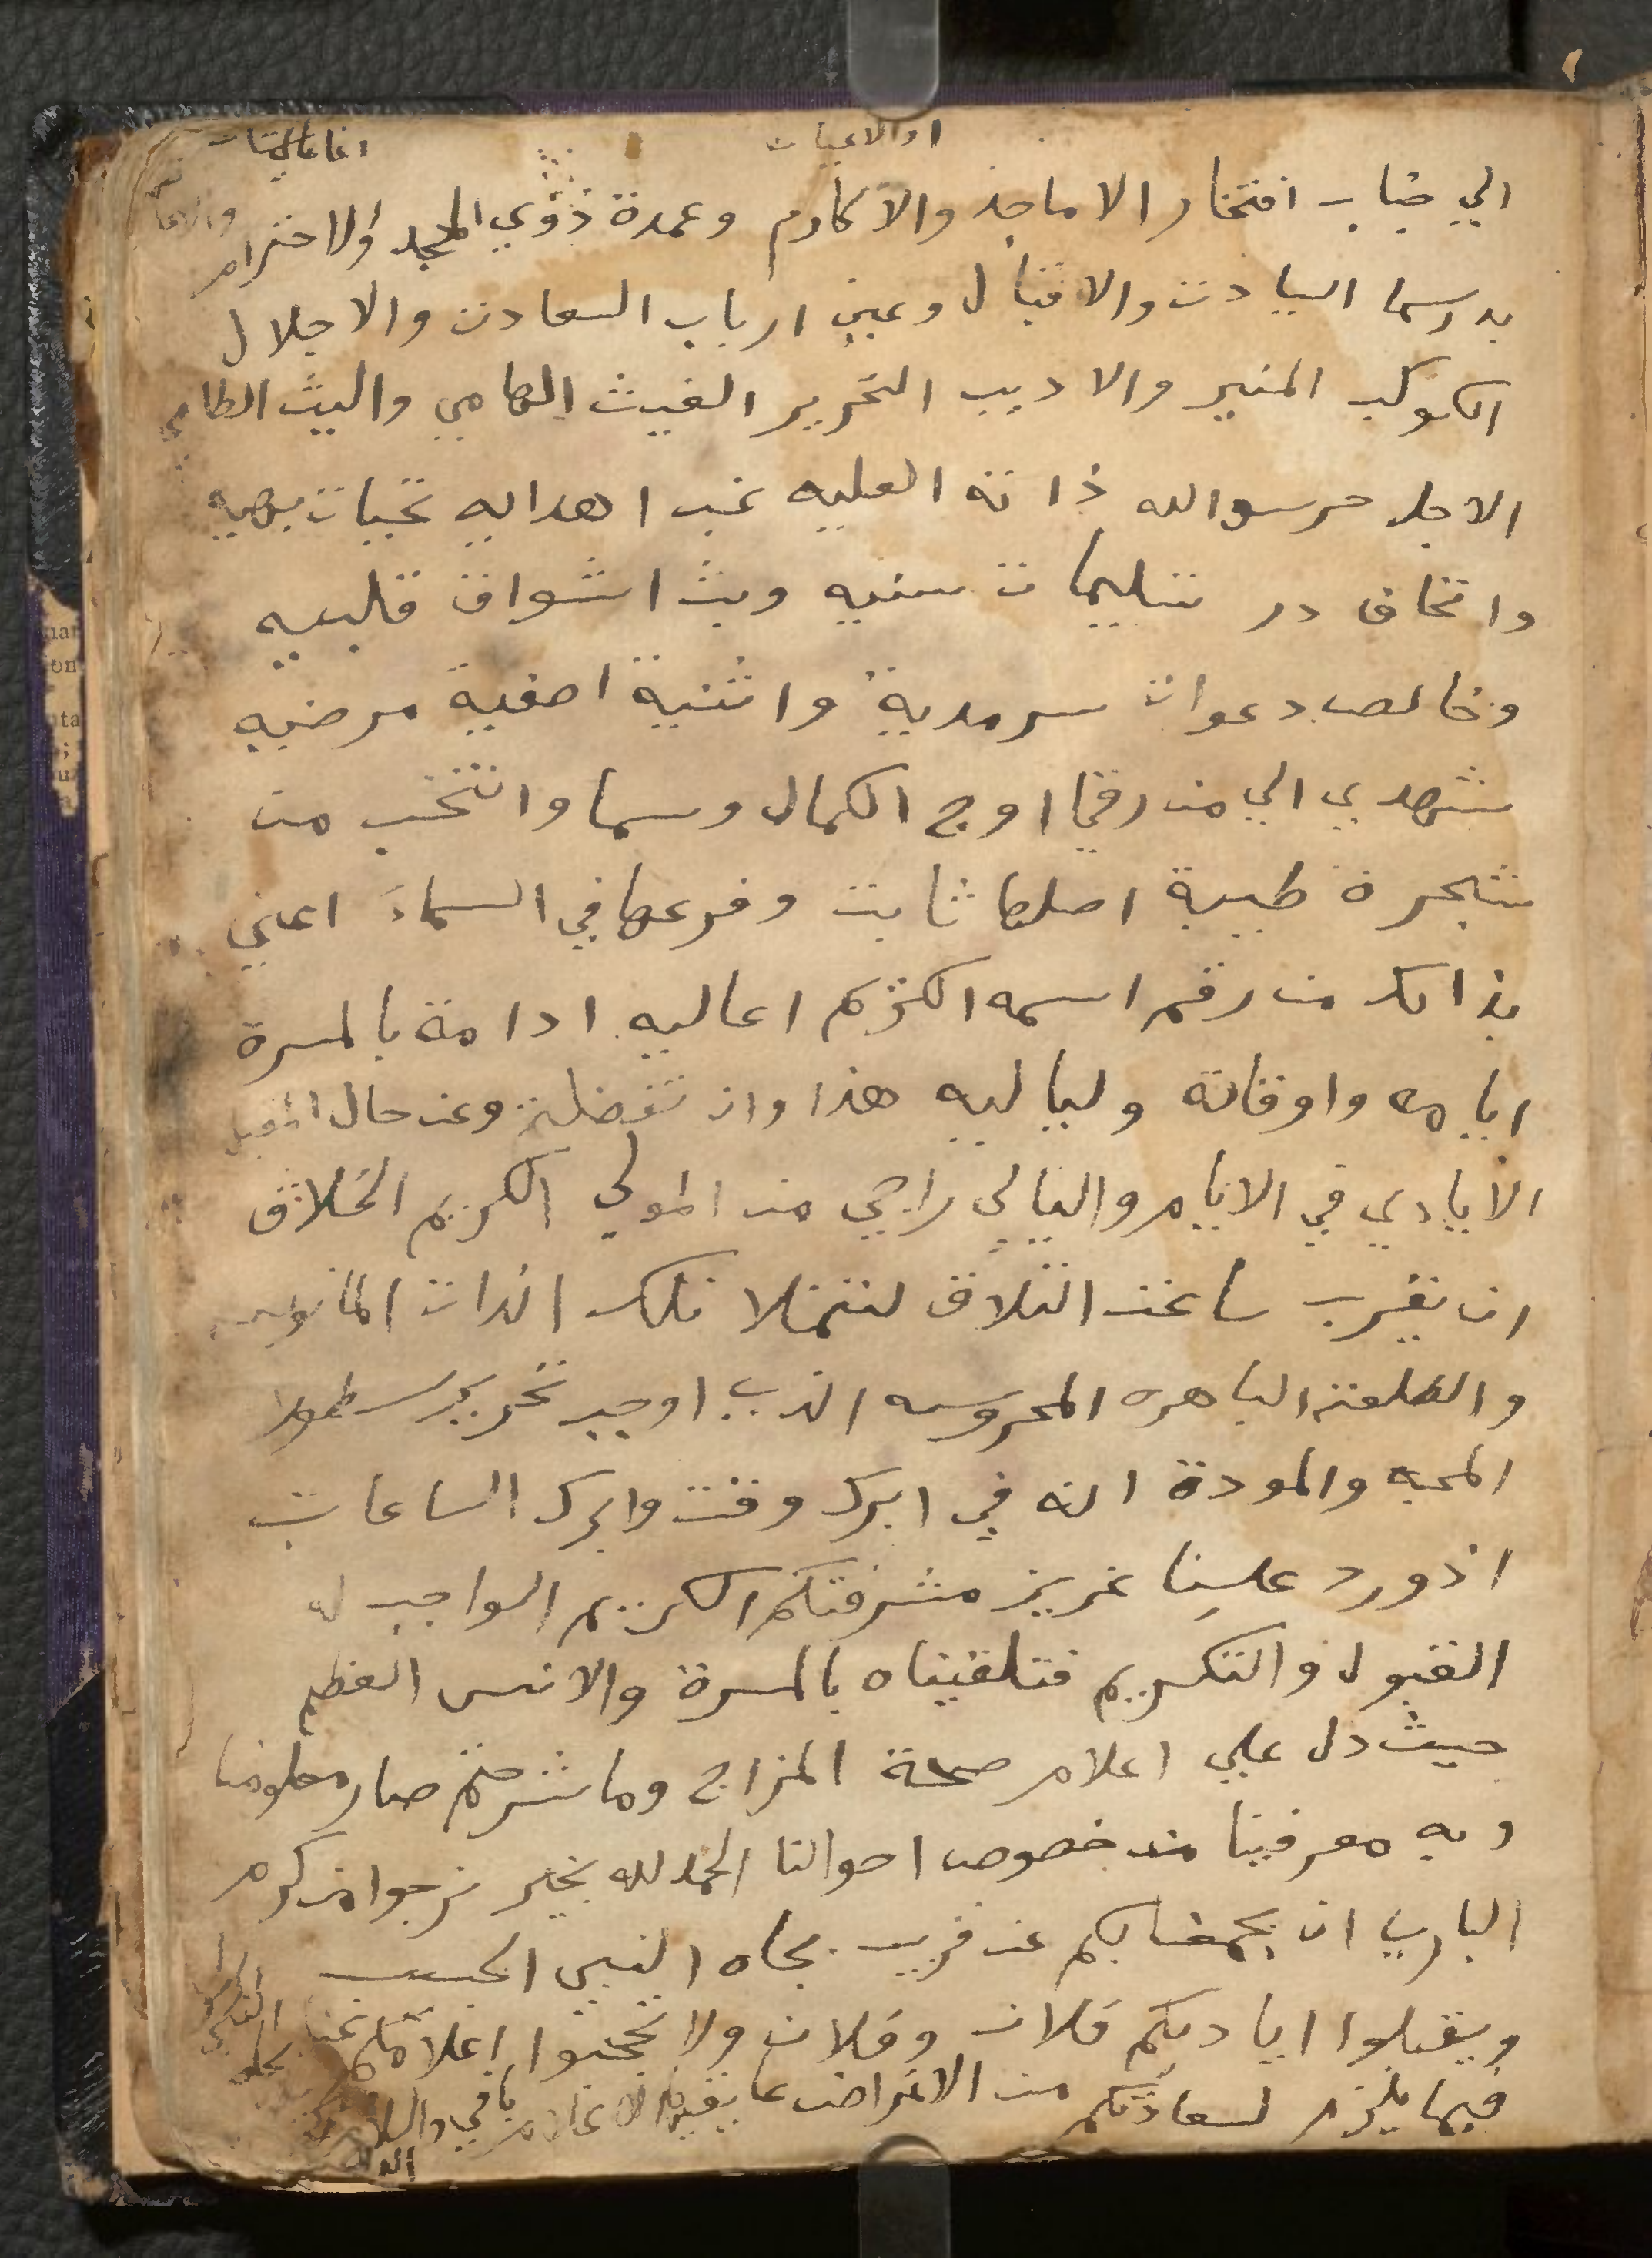 او الاعيان
الي جناب افتخار الاماجد والاكارم وعمدة ذوي المجد والاحترام
بدر سما السيادت والاقبال وعين ارباب السعادت والاجلال
الكوكب المنير والاديب النحرير الغيث الهامي والليث الطامي
الاجل حرسو الله ذاته العليه غب اهدايه تحيات بهيه
واتحاف در تسليمات سنيه وبث اشواق قلبيه
وخالص دعوات سرمدية واثنية اصفية مرضيه
نتهدي الي من رقي اوج الكمال وسما وانتخب من
شجرة طيبة اصلها ثابت وفرعها في السماء اعني
بذالك من رقم اسمه اكنكم اعاليه ادامة بالمسرة
ايامه واوقاته ولياليه هذا وان تفضلتو عن حال المقبل
الأيادي في الايام والليالي راجي من المولي الكريم الخلاق
ان يقرب ساعت التلاق لنتملا تلك الذات المانوسه
والطلعت الباهره المحروسه الذي اوجب تحرير سطور
المحبه والمودة انه في ابرك وقت وابرك الساعات
اذ ورد علينا عزيز مشرفتكم الكريم الواجب له
القبول والتكريم فتلقيناه بالمسرة والانس العظيم
حيث دل علي اعلام صحة المزاج وما شرحتم صار معلومنا
وبه معرفينا من خصوص احوالنا الحمد لله بخير نرجوا من كرم
الباري ان يجمعنا بكم عن قريب بجاه النبي الحبيب
ويقبلوا اياديكم فلان وفلان ولا تحجبوا اعلامكم عنا
فيما يلزم لسعادتكم من الاغراض